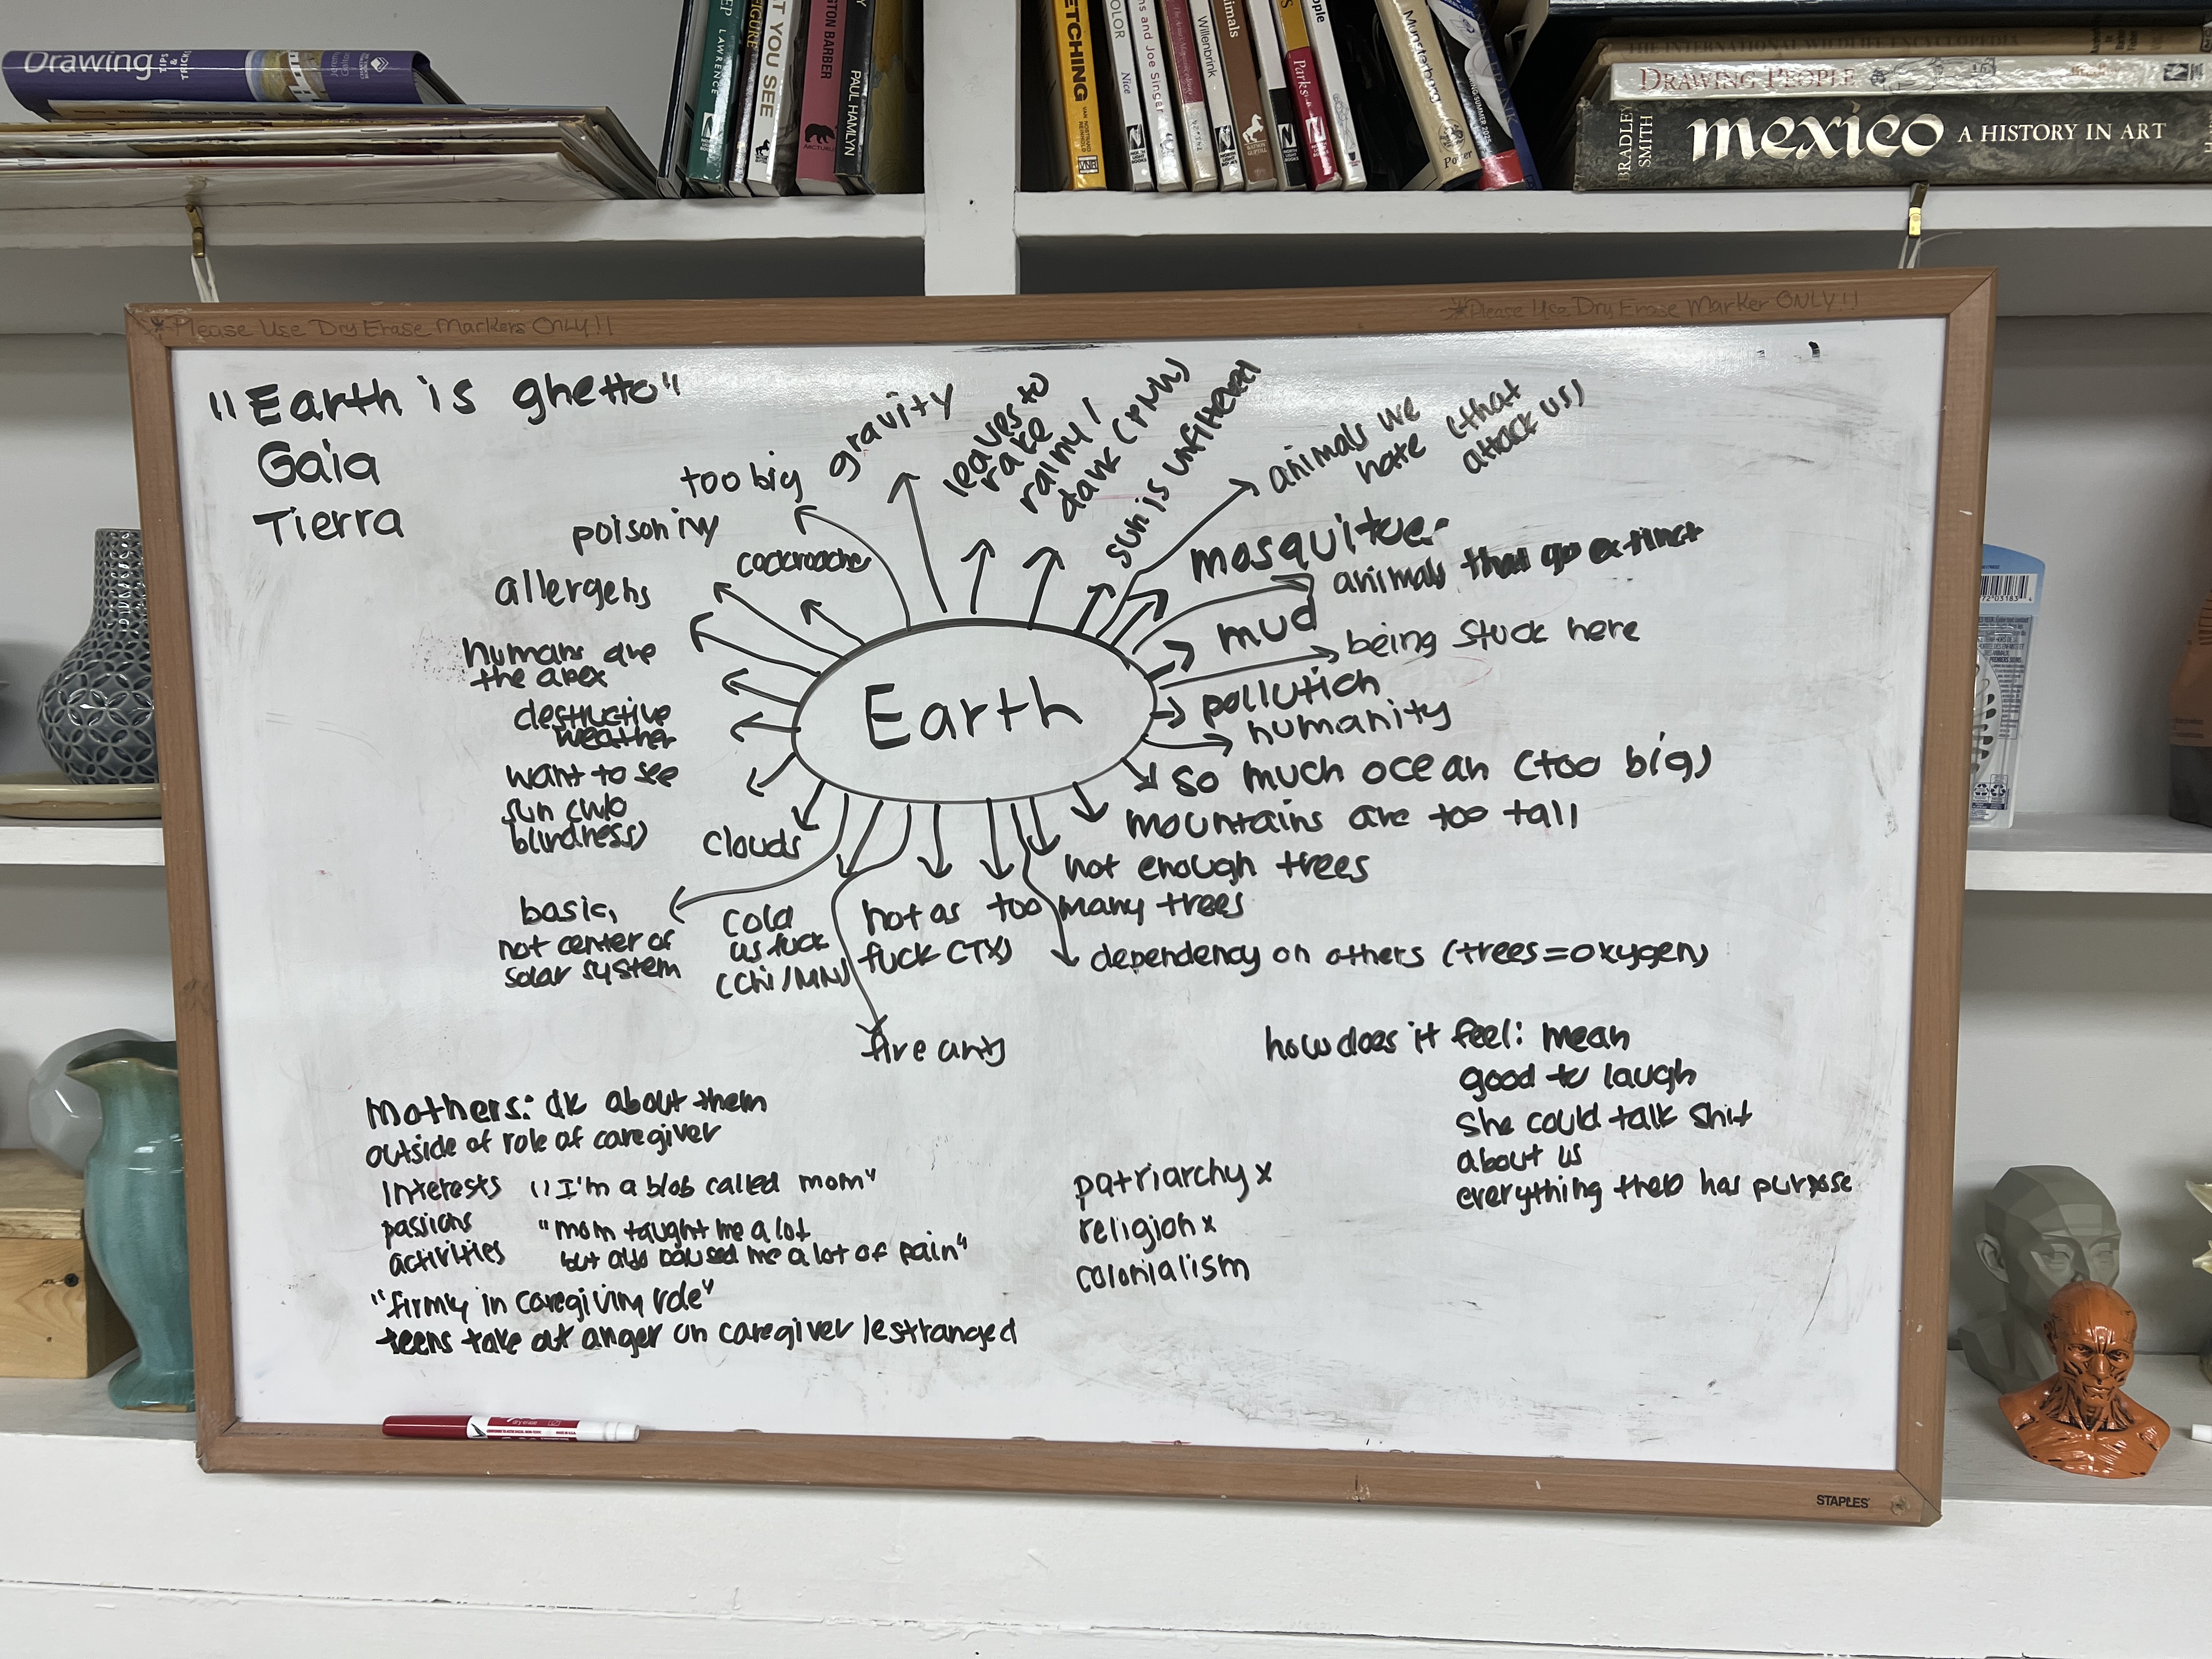 Drawing
TIPS & TRICKS
LAWRENCE
FIGURE
T YOU SEE
GTON BARBER
ARCTURUS
PAUL HAMLYN
ETCHING
COLOR
Nice
ns and Joe Singer
Willenbrink
nimals
Parks
ople
Munsterberg
Power
THE INTERNATIONAL WILDLIFE ENCYCLOPEDIA
DRAWING PEOPLE
BRADLEY SMITH
mexico A HISTORY IN ART
*Please Use Dry Erase Markers ONLY!!
*Please Use Dry Erase Marker ONLY!!
"Earth is ghetto"
Gaia
Tierra
Earth
too big
gravity
leaves to
rake
rainy /
dark (PNW)
sun is unfiltered
animals we
hate (that
attack us)
mosquitoe
animals that go extinct
mud
being stuck here
pollution
humanity
so much ocean (too big)
mountains are too tall
not enough trees
too many trees
dependency on others (trees=oxygen)
hot as
fuck (TX)
fire ants
cold
as fuck
(Chi/MN)
basic,
not center of
solar system
clouds
want to see
sun (w/o
blindness)
destructive
weather
humans are
the apex
allergens
poison ivy
cockroaches
how does it feel: mean
good to laugh
she could talk shit
about us
everything has purpose
mothers: dk about them
outside of role of caregiver
interests "I'm a blob called mom"
passions "mom taught me a lot
activities but also caused me a lot of pain"
"firmly in caregiving role"
teens take out anger on caregiver/estranged
patriarchy x
religion x
colonialism
STAPLES